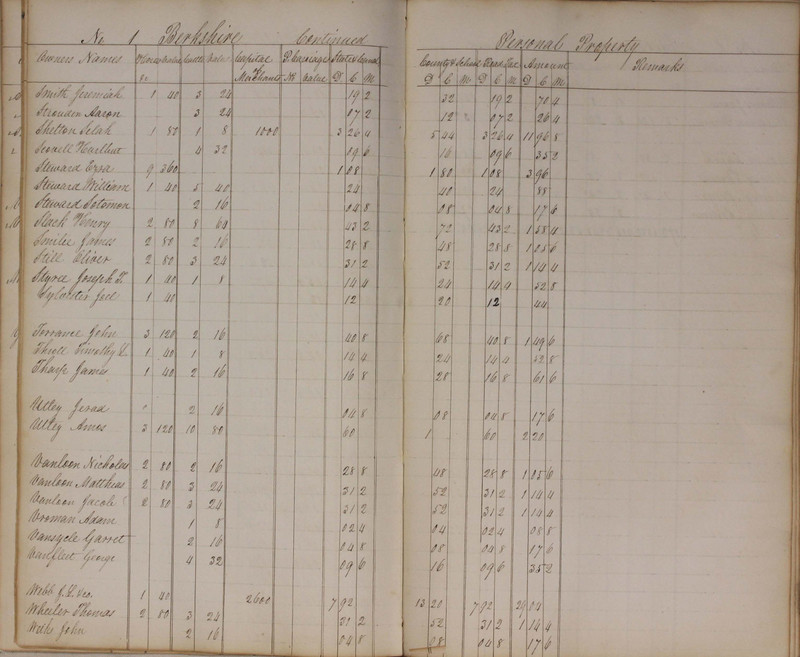 No 1 Berkshire Continued Personal Property
Owners Names Horses Value Cattle Value Capital Merchants Carriages No Value State & Canal D C M County & School D C M Road Tax D C M Amount D C M Remarks
Smith Jeremiah 1 40 3 24 19 2 32 19 2 70 4
Strouder Aaron 3 24 07 2 12 07 2 26 4
Shelton Selah 1 80 1 8 1000 3 26 4 5 44 3 26 4 11 96 8
4 32 09 6 16 09 6 35 2
Steward Ezra 9 360 1 08 1 80 1 08 3 96
Steward William 1 40 5 40 24 40 24 88
Steward Solomon 2 16 04 8 08 04 8 17 6
Slack Henry 2 80 8 64 43 2 72 43 2 1 58 4
James 2 80 2 16 28 8 48 28 8 1 05 6
Still Oliver 2 80 3 24 31 2 52 31 2 1 14 4
Joseph 1 40 1 8 14 4 24 14 4 52 8
Sylvester Joel 1 40 12 20 12 44
Torrance John 3 120 2 16 40 8 68 40 8 1 49 6
Timothy 1 40 1 8 14 4 24 14 4 52 8
Tharp James 1 40 2 16 16 8 28 16 8 61 6
Utley 2 16 04 8 08 04 8 17 6
Utley Amos 3 120 10 80 60 1 60 2 20
Vanloon Nicholas 2 80 2 16 28 8 48 28 8 1 05 6
Vanloon Matthias 2 80 3 24 31 2 52 31 2 1 14 4
Vanloon Jacob 2 80 3 24 31 2 52 31 2 1 14 4
Vroman Adam 1 8 02 4 04 02 4 08 8
Vansycle Garret 2 16 04 8 08 04 8 17 6
Vanfleet George 4 32 09 6 16 09 6 35 2
Webb J. & Co. 1 40 2600 7 92 13 20 7 92 29 04
Wheeler Thomas 2 80 3 24 31 2 52 31 2 1 14 4
John 2 16 04 8 08 04 8 17 6